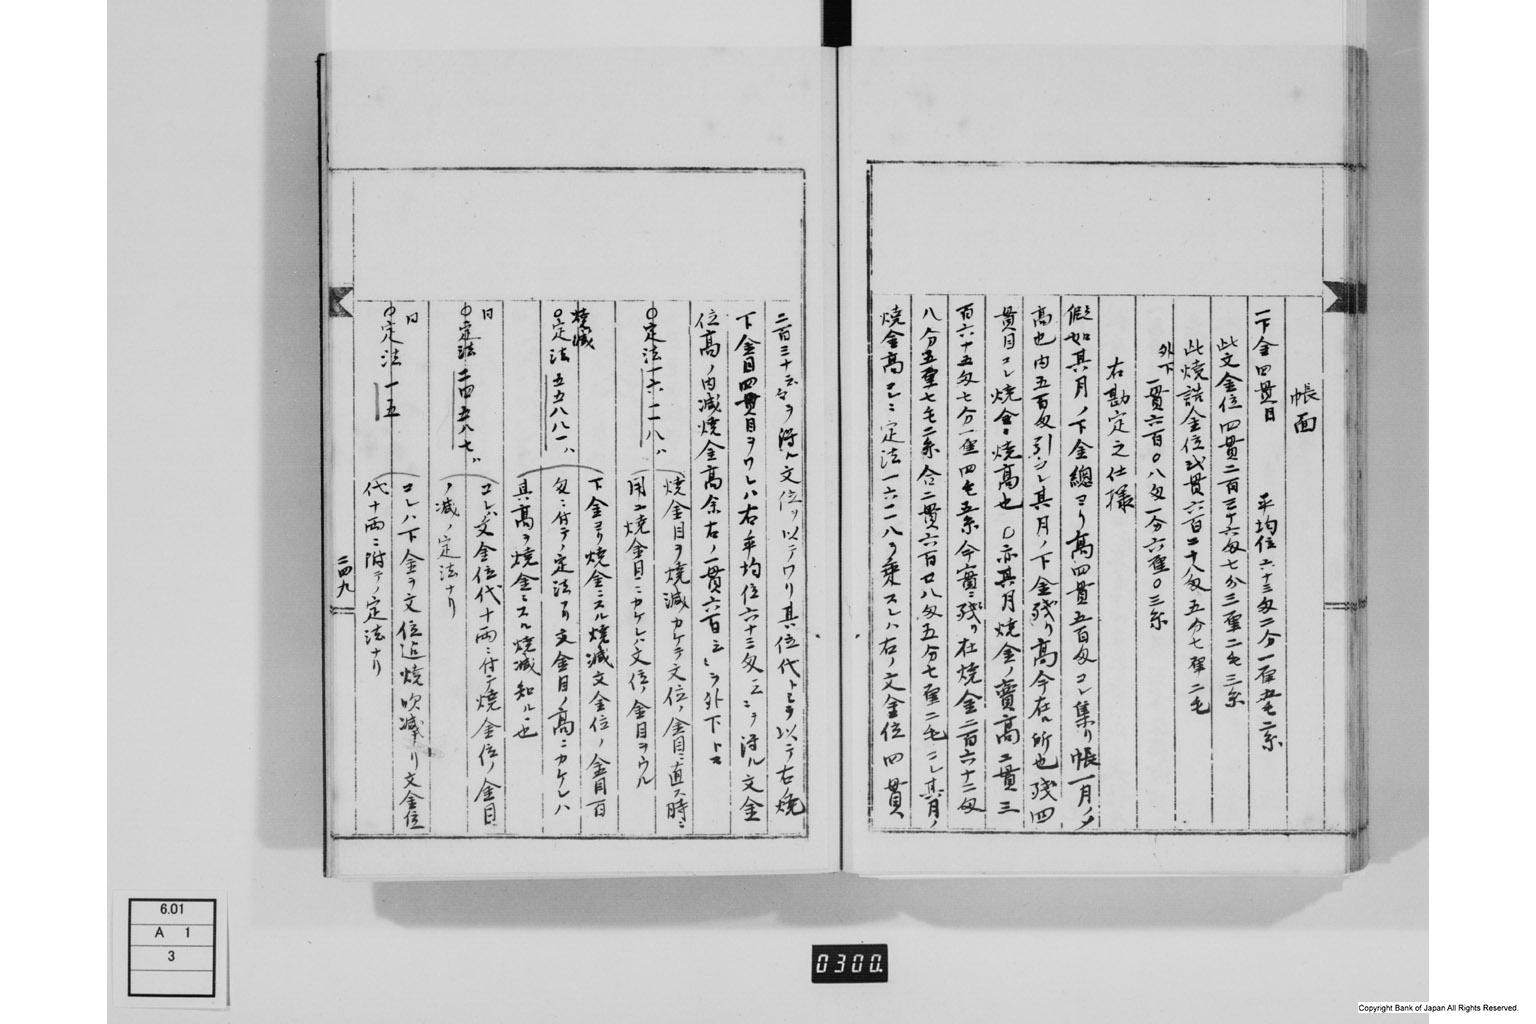 帳面
一下金四貫目 平均位六十三匁二分一厘五毛二糸
此文金位四貫二百三十六匁七分三厘二毛三糸
此焼詰金位弐貫六百二十八匁五分七厘二毛
外下 一貫六百〇八匁一分六厘〇三糸
右勘定之仕様
假如其月ノ下金總ヨリ高四貫五百匁コレ集リ帳一月〆
高也内五百匁引コレ其月ノ下金残リ高今在ル所也残四
貫目コレ焼金ニ焼高也 亦其月焼金ノ實高二貫三
百六十五匁七分一厘四毛五糸今實ニ残リ在焼金二百六十二匁
八分五厘七毛二糸合二貫六百廿八匁五分七厘二毛コレ其月ノ
焼金高コレニ定法一六一二八ヲ乗スレハ右ノ文金位四貫
二百三十云々ヲ得ル文位ヲ以テワリ其位代トミヲ以テ右焼
下金目四貫目ヲワレハ右ノ平均位六十三匁云云ヲ得ル文金
位高ノ内減焼金高余右ノ一貫六百云云ヲ外下トス
〇定法一六一二八ハ 焼金目ヲ焼減カケテ文位ノ金目ニ直ス時ニ
用ユ焼金目ニカケレハ文位ノ金目ヲウル
焼減
〇定法五五八八一ハ 下金ヨリ焼金ニスル焼減文金位ノ金目百
匁ニ付テノ定法ナリ文金目ノ高ニカケレハ
其高ヲ焼金ニスル焼減知ル也
日
〇定法二四五八七ハ コレハ文金位代十両ニ付テ焼金位ノ金目
ノ減ノ定法ナリ
日
〇定法一五 コレハ下金ヲ文位迄焼吹減ナリ文金位
代十両ニ附テノ定法ナリ
二四九
6.01
A 1
3
0300.
Copyright Bank of Japan All Rights Reserved.